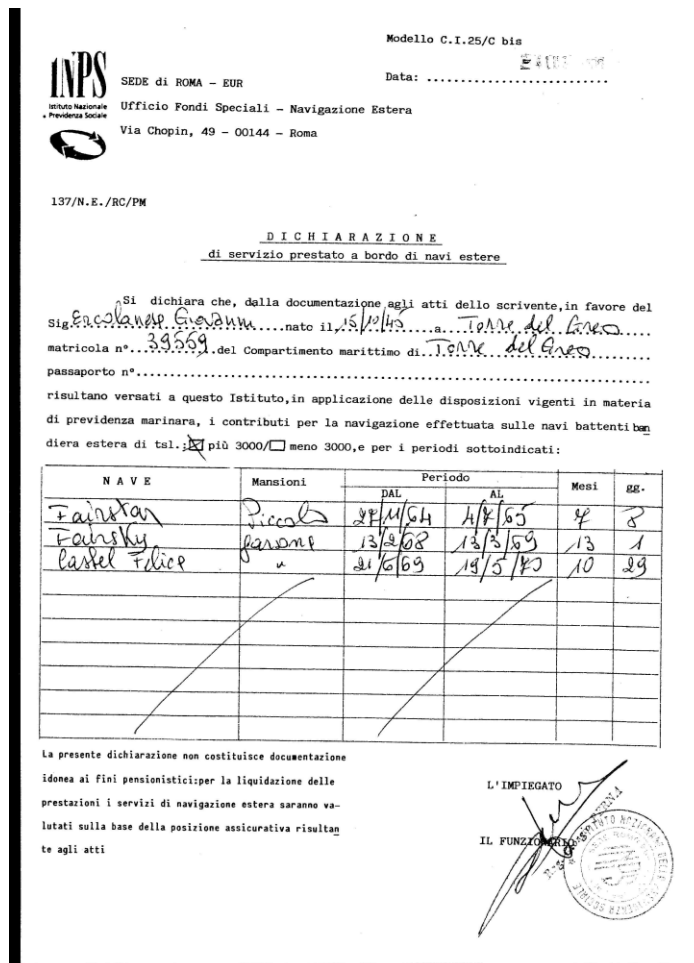 Modello C.I.25/C bis
INPS
Istituto Nazionale
Previdenza Sociale
SEDE di ROMA - EUR
Data: ...........................
Ufficio Fondi Speciali - Navigazione Estera
Via Chopin, 49 - 00144 - Roma
137/N.E./RC/PM
DICHIARAZIONE
di servizio prestato a bordo di navi estere
Si dichiara che, dalla documentazione agli atti dello scrivente, in favore del
Sig. Ercolanese Giovanni nato il 15/10/45 a Torre del Greco
matricola n° 39559 del Compartimento marittimo di Torre del Greco
passaporto n°
risultano versati a questo Istituto, in applicazione delle disposizioni vigenti in materia
di previdenza marinara, i contributi per la navigazione effettuata sulle navi battenti ban
diera estera di tsl.: ☒ più 3000/☐ meno 3000, e per i periodi sottoindicati:
NAVE Mansioni Periodo Mesi gg.
DAL AL
Fairstar Piccolo 27/11/64 4/7/65 7 8
Fairsky garzone 13/2/68 13/3/69 13 1
Castel Felice " 21/6/69 19/5/70 10 29
La presente dichiarazione non costituisce documentazione
idonea ai fini pensionistici:per la liquidazione delle
prestazioni i servizi di navigazione estera saranno va-
lutati sulla base della posizione assicurativa risultan
te agli atti
L'IMPIEGATO
IL FUNZIONARIO